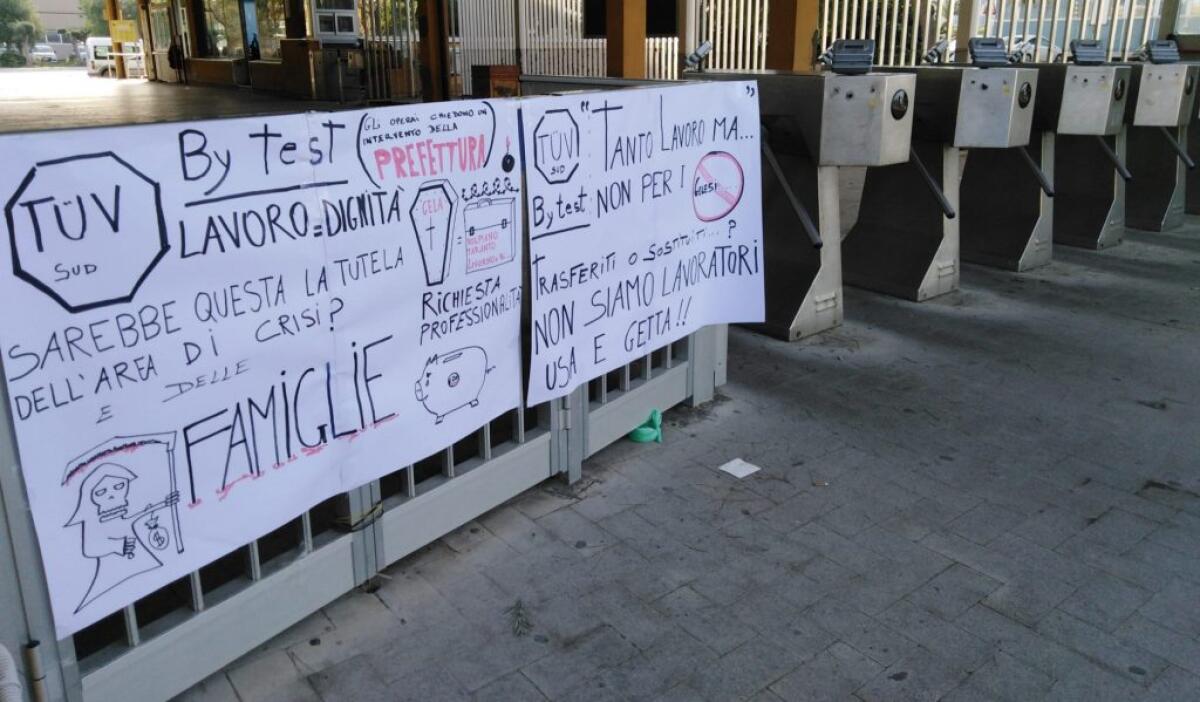 TÜV
SUD
By Test
GLI OPERAI CHIEDONO UN
INTERVENTO DELLA
PREFETTURA
LAVORO = DIGNITÀ
GELA
=
VOLPIANO
TARANTO
LIVORNO
SAREBBE QUESTA LA TUTELA
DELL'AREA DI CRISI?
E DELLE
FAMIGLIE
RICHIESTA
PROFESSIONALITÀ
$
TÜV
SUD
By test:
"TANTO LAVORO MA..."
NON PER I GELESI...
TRASFERITI O SOSTITUITI...?
NON SIAMO LAVORATORI
USA E GETTA!!